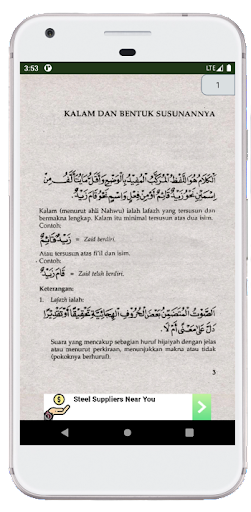 3:53
LTE
1
KALAM DAN BENTUK SUSUNANNYA
اَلْكَلَامُ هُوَ اللَّفْظُ الْمُرَكَّبُ الْمُفِيْدُ بِالْوَضْعِ وَاَقَلُّ مَايَتَأَلَّفُ مِنْ
اِسْمَيْنِ نَحْوُ زَيْدٌ قَائِمٌ اَوْمِنْ فِعْلٍ وَاسْمٍ نَحْوُ قَامَ زَيْدٌ.
Kalam (menurut ahli Nahwu) ialah lafazh yang tersusun dan
bermakna lengkap. Kalam itu minimal tersusun atas dua isim.
Contoh:
زَيْدٌ قَائِمٌ = Zaid berdiri.
Atau tersusun atas fi'il dan isim.
Contoh:
قَامَ زَيْدٌ = Zaid telah berdiri.
Keterangan:
1. Lafazh ialah:
اَلصَّوْتُ الْمُتَضَمِّنُ بَعْضَ الْحُرُوْفِ الْهِجَائِيَّةِ تَحْقِيْقًا اَوْ تَقْدِيْرًا
دَلَّ عَلَى مَعْنًى اَمْ لَا.
Suara yang mencakup sebagian huruf hijaiyah dengan jelas
atau menurut perkiraan, menunjukkan makna atau tidak
(pokoknya berhuruf).
3
Steel Suppliers Near You